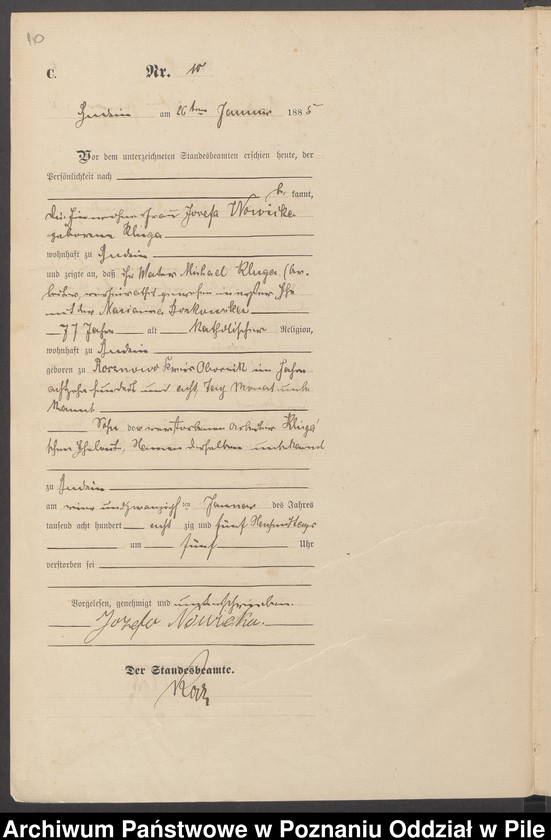 10
C. Nr. 10
am 26ten Januar 1885
Vor dem unterzeichneten Standesbeamten erschien heute, der
Persönlichkeit nach
be kannt,
die Einwohner Frau Josefa Nowicka
geborene Kluga
wohnhaft zu
und zeigte an, daß ihr Vater Michael Kluga (Ar-
beiter, verheirathet gewesen in erster Ehe
mit der Marianna
77 Jahre alt, katholischer Religion,
wohnhaft zu
geboren zu Kreis Obornik im Jahre
achtzehnhundert und acht, Tag Monat unbe
kannt
Sohn der verstorbenen Arbeiter Kluga
schen Eheleute, Namen derselben unbekannt
zu
am den Januar des Jahres
tausend acht hundert acht zig und fünf Nachmittags
um fünf Uhr
verstorben sei
Vorgelesen, genehmigt und unterschrieben
Jozefa Nowicka.
Der Standesbeamte.
Archiwum Państwowe w Poznaniu Oddział w Pile